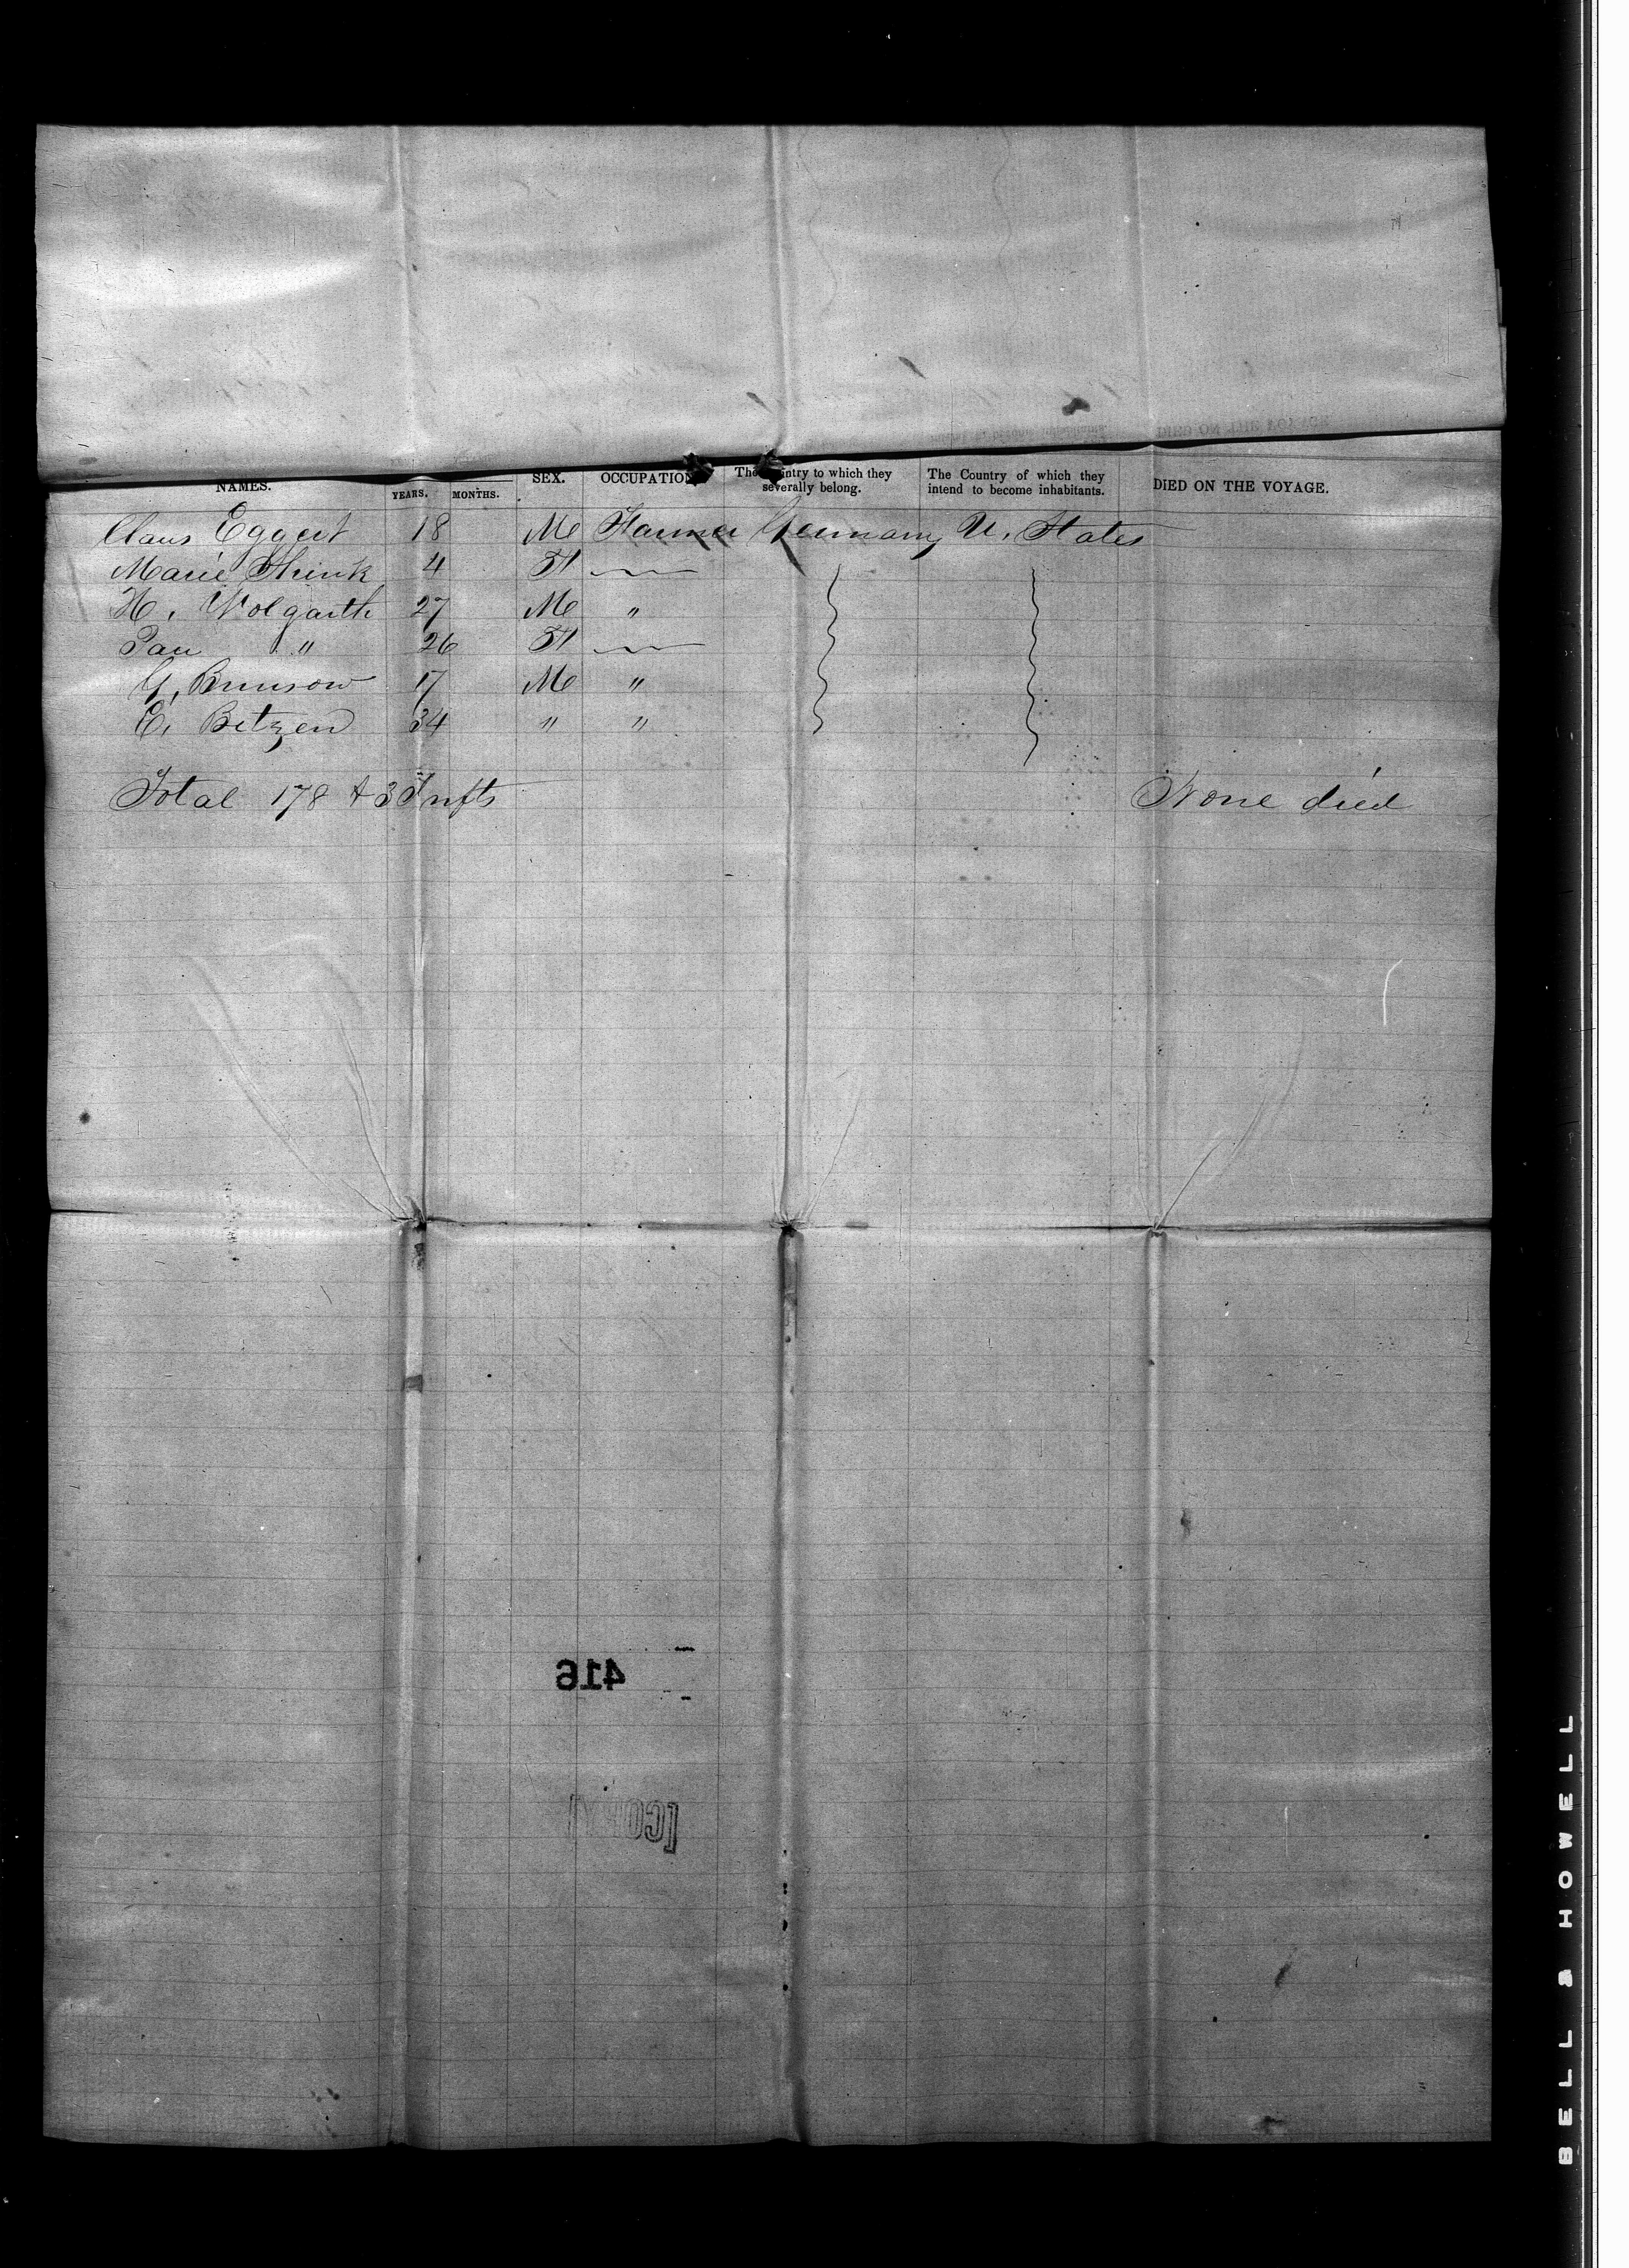 NAMES. YEARS. MONTHS. SEX. OCCUPATION The Country to which they severally belong. The Country of which they intend to become inhabitants. DIED ON THE VOYAGE.
Claus Eggert 18 M Farmer Germany U. States
Marie Think 4 F
H. Wolgarth 27 M "
Pau " 26 F
G. Brunsow 17 M "
E. Betzen 34 " "
Total 178 & 3 Infts None died
416
[COPY]
BELL & HOWELL